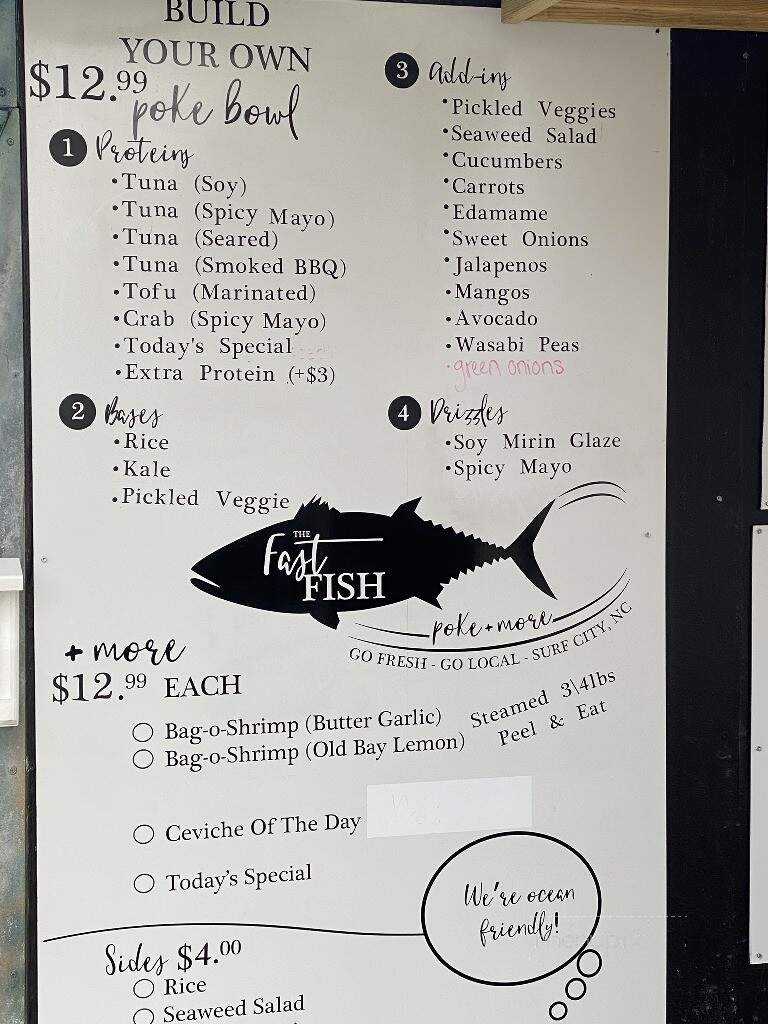 BUILD
YOUR OWN
$12.99
poke bowl
1 Proteins
•Tuna (Soy)
•Tuna (Spicy Mayo)
•Tuna (Seared)
•Tuna (Smoked BBQ)
•Tofu (Marinated)
•Crab (Spicy Mayo)
•Today's Special
•Extra Protein (+$3)
2 Bases
•Rice
•Kale
•Pickled Veggie
3 Add-ins
•Pickled Veggies
•Seaweed Salad
•Cucumbers
•Carrots
•Edamame
•Sweet Onions
•Jalapenos
•Mangos
•Avocado
•Wasabi Peas
•green onions
4 Drizzles
•Soy Mirin Glaze
•Spicy Mayo
THE
Fast
FISH
poke + more
GO FRESH - GO LOCAL - SURF CITY, NC
+ more
$12.99 EACH
Bag-o-Shrimp (Butter Garlic)
Bag-o-Shrimp (Old Bay Lemon)
Steamed 3\4lbs
Peel & Eat
Ceviche Of The Day
Today's Special
We're ocean
friendly!
Sides $4.00
Rice
Seaweed Salad